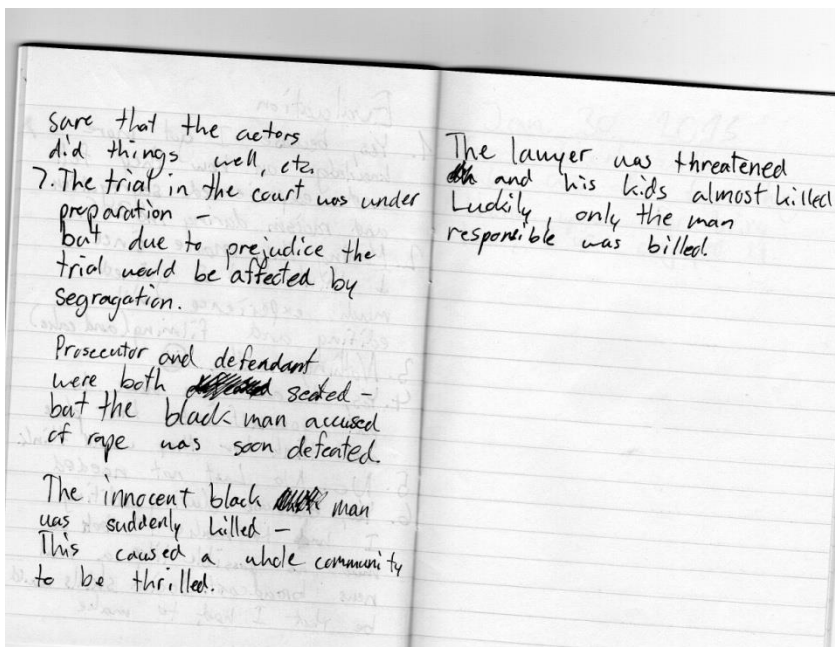 sure that the actors
did things well, etc.
7. The trial in the court was under
preparation –
but due to prejudice the
trial would be affected by
segragation.
Prosecutor and defendant
were both seated –
but the black man accused
of rape was soon defeated.
The innocent black man
was suddenly killed –
This caused a whole community
to be thrilled.
The lawyer was threatened
and his kids almost killed
Luckily, only the man
responsible was billed.